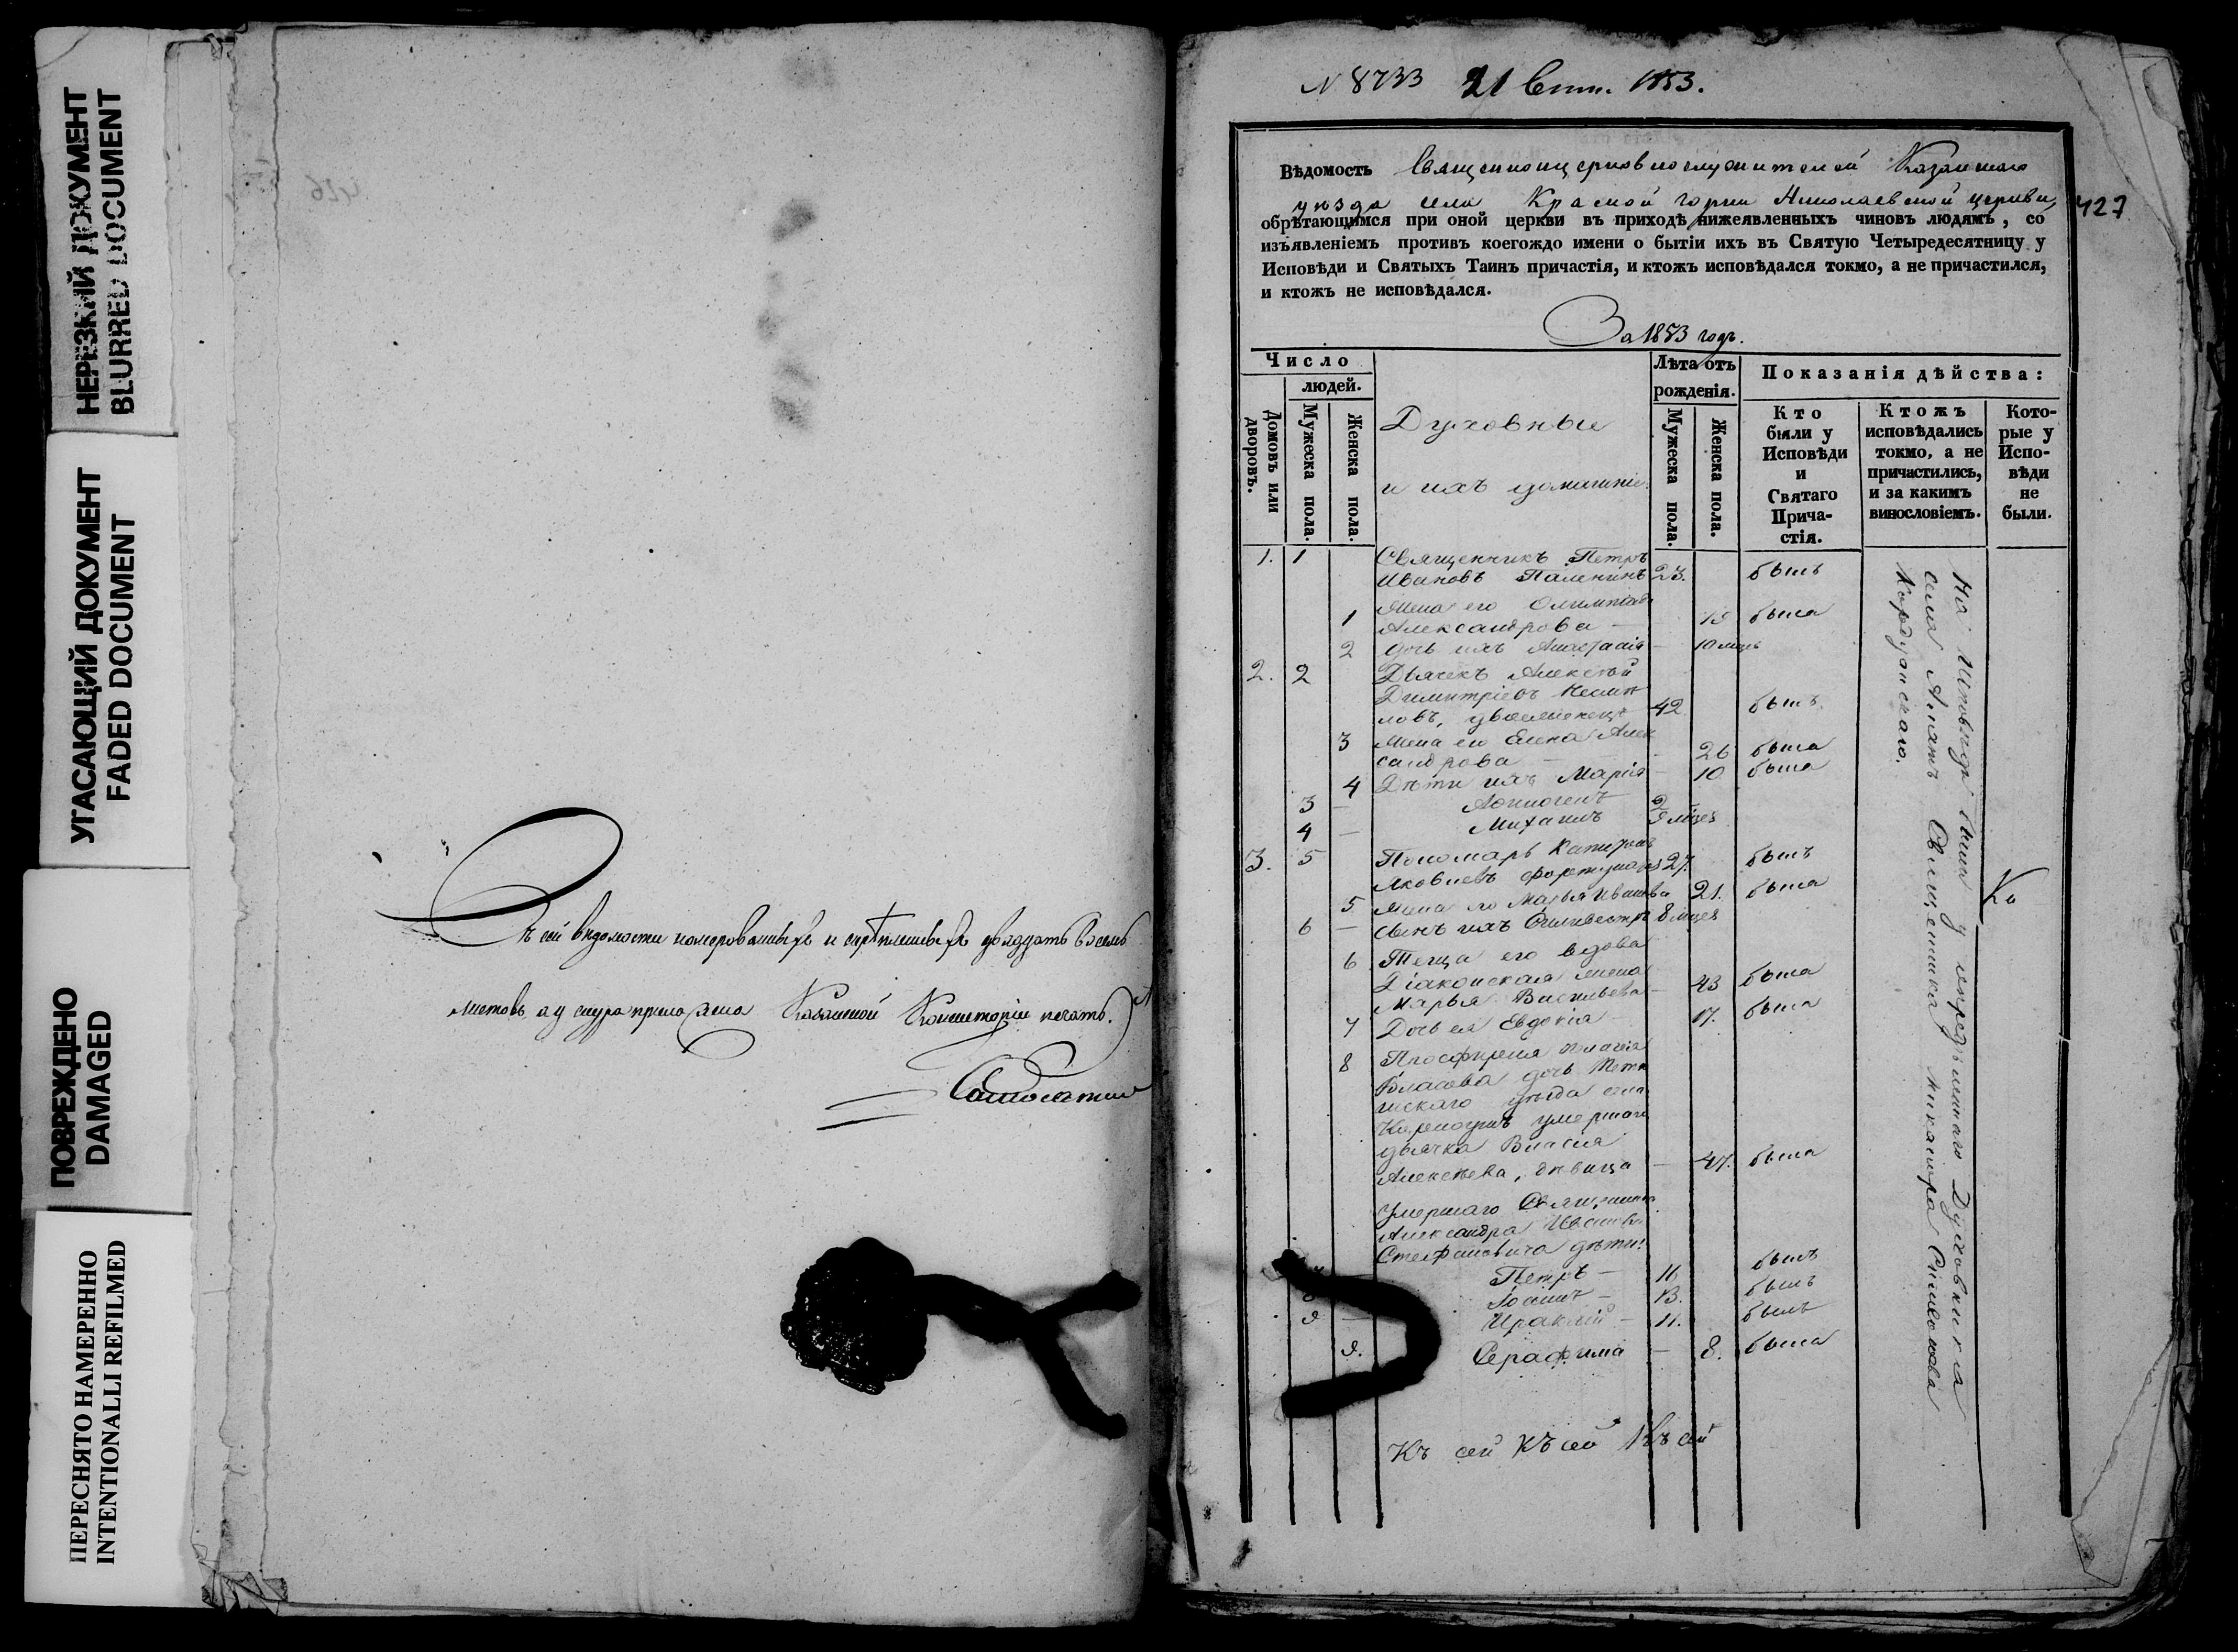 НЕРЕЗКИЙ ДОКУМЕНТ
BLURRED DOCUMENT
УГАСАЮЩИЙ ДОКУМЕНТ
FADED DOCUMENT
ПОВРЕЖДЕНО
DAMAGED
ПЕРЕСНЯТО НАМЕРЕННО
INTENTIONALLI REFILMED
Въ сей вѣдомости номерованныхъ и скрѣпленныхъ двадцать восемь
листовъ, а у снура приложена Казанской Консисторіи печать.
N 8733 21 Сент. 1853.
Вѣдомость Священноцерковнослужителей Казанскаго
уѣзда села Красной горки Николаевской церкви,
427
обрѣтающимся при оной церкви въ приходѣ нижеявленныхъ чиновъ людямъ, со
изъявленіемъ противъ коегождо имени о бытіи ихъ въ Святую Четыредесятницу у
Исповѣди и Святыхъ Таинъ причастія, и ктожъ исповѣдался токмо, а не причастился,
и ктожъ не исповѣдался.
За 1853 годъ.
Число
людей.
Домовъ или дворовъ.
Мужеска пола.
Женска пола.
Духовные
и ихъ домашніе.
Лѣта отъ
рожденія.
Мужеска пола.
Женска пола.
Показанія дѣйства:
Кто
были у
Исповѣди
и
Святаго
Прича-
стія.
Ктожъ
исповѣдались
токмо, а не
причастились,
и за какимъ
винословіемъ.
Кото-
рые у
Испо-
вѣди
не
были.
1. 1 Священникъ Петръ
Ивановъ 23. былъ
Жена его Олимпіада
1 Александрова — 19 была
2 дочь ихъ Анастасія — 10 мцъ
2. 2 Дьячекъ Алексѣй
Димитріевъ
ловъ, 42 былъ
3 Жена его Елена Алек
сандрова — 26 была
4 Дѣти ихъ Марія — 10 была
3 — 2
4 — Михаилъ
3. 5 Пономарь Капитонъ
Яковлевъ 27. былъ
5 Жена его Марья Иванова 21. была
6 — сынъ ихъ Сильвестръ 8 мцев
6 Теща его вдова
Діаконская жена
Марья Васильева — 43 была
7 Дочь ея Евдокія — 17. была
8 Просфирня
Власова дочь Тетю
шскаго уѣзда села
умершаго
дьячка Власія
Алексѣева, дѣвица — 47. была
Умершаго Священника
Александра Иванова
Стефановича дѣти:
Петръ — 16 былъ
— 13. былъ
9 — Ираклій — 11. былъ
9. Серафима — 8. была
Къ сей Къ сей Къ сей
На Исповѣди были у опредѣленнаго Духовника
села Алатъ Священника Никанора
Ка